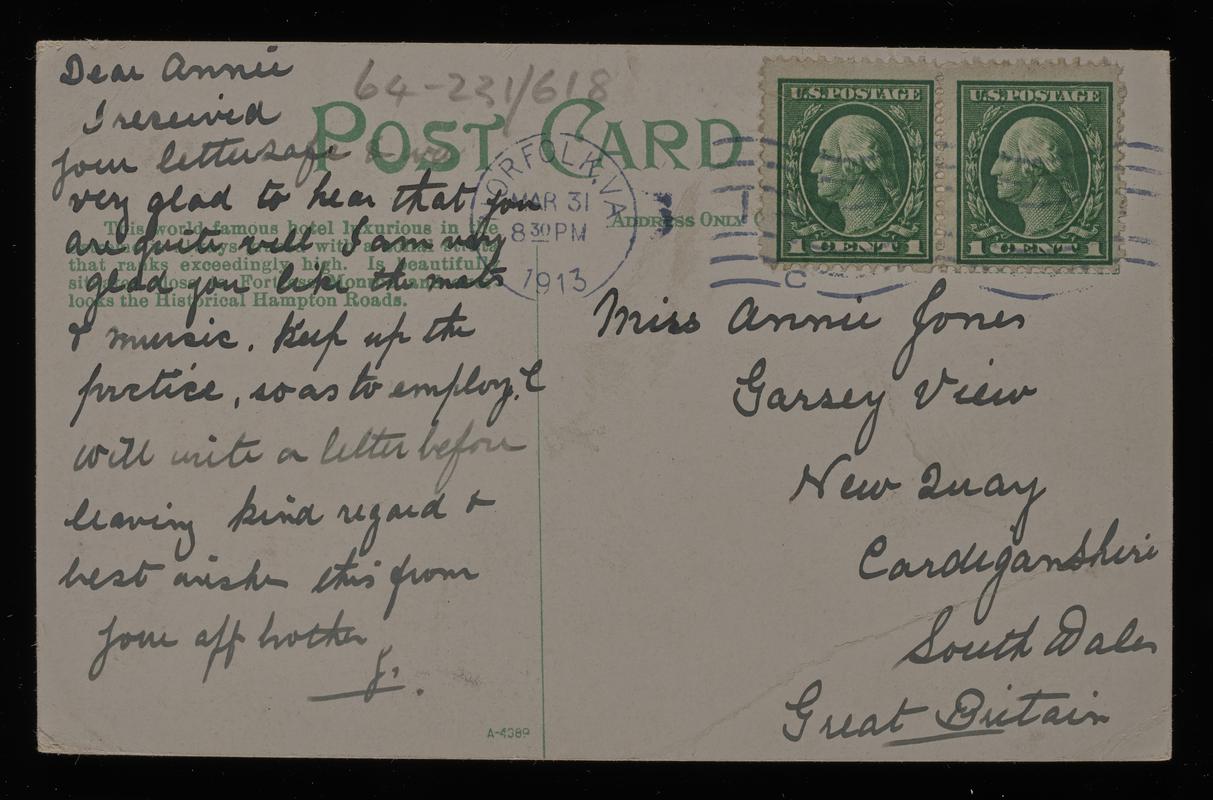 Dear Annie
I received
your letter safe & was
very glad to hear that you
are quite well I am very
glad you like the mats
& mursic. Keep up the
prctice, so as to employ. I
will write a letter before
leaving kind regard &
best wishe this from
your aff brother
J.
64-231/618
POST CARD
This world famous hotel luxurious in the
with
that ranks exceedingly high. Is beautifully
looks the Historical Hampton Roads.
A-4389
NORFOLK, VA
MAR 31
8 30 PM
1913
ADDRESS ONLY
U.S. POSTAGE
1 CENT 1
U.S. POSTAGE
1 CENT 1
Miss Annie Jones
Garsey View
New Quay
Cardiganshire
South Wales
Great Britain